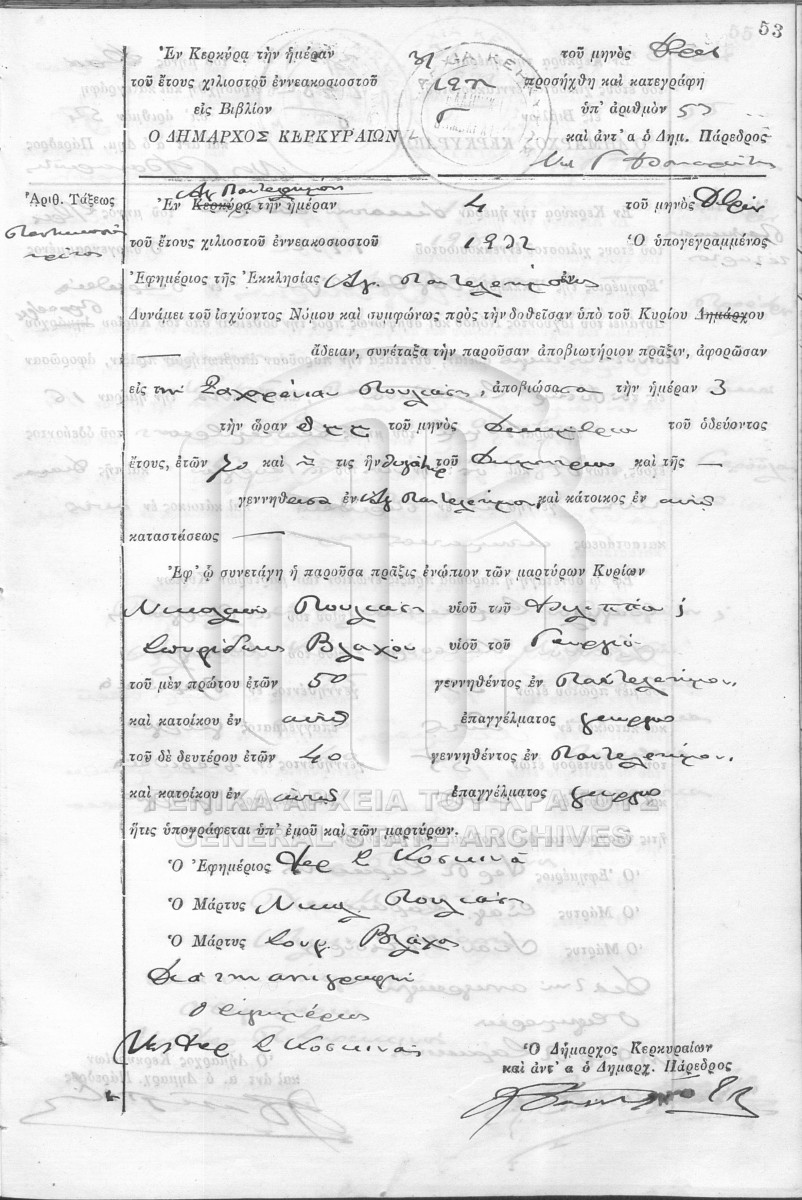 53
Ἐν Κερκύρᾳ τὴν ἡμέραν 31 τοῦ μηνὸς
τοῦ ἔτους χιλιοστοῦ ἐννεακοσιοστοῦ προσήχθη καὶ κατεγράφη
εἰς Βιβλίον ὑπ' ἀριθμὸν 53
Ο ΔΗΜΑΡΧΟΣ ΚΕΡΚΥΡΑΙΩΝ καὶ ἀντ' α ὁ Δημ. Πάρεδρος
Ἀριθ. Τάξεως
Ἁγ Παντελεήμονι
Ἐν Κερκύρᾳ τὴν ἡμέραν 4 τοῦ μηνὸς
τοῦ ἔτους χιλιοστοῦ ἐννεακοσιοστοῦ 1922 Ὁ ὑπογεγραμμένος
Ἐφημέριος τῆς Ἐκκλησίας Ἁγ. Παντελεήμονος
Δυνάμει τοῦ ἰσχύοντος Νόμου καὶ συμφώνως πρὸς τὴν δοθεῖσαν ὑπὸ τοῦ Κυρίου Δημάρχου
— ἄδειαν, συνέταξα τὴν παροῦσαν ἀποβιωτήριον πρᾶξιν, ἀφορῶσαν
εἰς τὴν Πουλιάση, ἀποβιώσασα τὴν ἡμέραν 3
τὴν ὥραν τοῦ μηνὸς Δεκεμβρίου τοῦ ὁδεύοντος
ἔτους, ἐτῶν 70 καὶ — τις ἦν θυγάτηρ τοῦ Δημητρίου καὶ τῆς —
γεννηθεῖσα ἐν Ἁγ Παντελεήμονι καὶ κάτοικος ἐν αὐτῷ
καταστάσεως —
Ἐφ' ᾧ συνετάγη ἡ παροῦσα πρᾶξις ἐνώπιον τῶν μαρτύρων Κυρίων
Νικολάου Πουλιάση υἱοῦ τοῦ Φιλίππου
Σπυρίδωνος Βλάχου υἱοῦ τοῦ Γεωργίου
τοῦ μὲν πρώτου ἐτῶν 50 γεννηθέντος ἐν Παντελεήμονι
καὶ κατοίκου ἐν αὐτῷ ἐπαγγέλματος γεωργοῦ
τοῦ δὲ δευτέρου ἐτῶν 40 γεννηθέντος ἐν Παντελεήμονι
καὶ κατοίκου ἐν αὐτῷ ἐπαγγέλματος γεωργοῦ
ΓΕΝΙΚΑ ΑΡΧΕΙΑ ΤΟΥ ΚΡΑΤΟΥΣ
ἥτις ὑπογράφεται ὑπ' ἐμοῦ καὶ τῶν μαρτύρων.
GENERAL STATE ARCHIVES
Ὁ Ἐφημέριος Ἱερ Σ Κοσκινᾶ
Ὁ Μάρτυς Νικολ. Πουλιάσης
Ὁ Μάρτυς Σπυρ. Βλάχος
Διὰ τὴν ἀντιγραφήν
Ὁ Ἐφημέριος
Ἱερ Σ Κοσκινᾶς
Ὁ Δήμαρχος Κερκυραίων
καὶ ἀντ' α ὁ Δημαρχ. Πάρεδρος